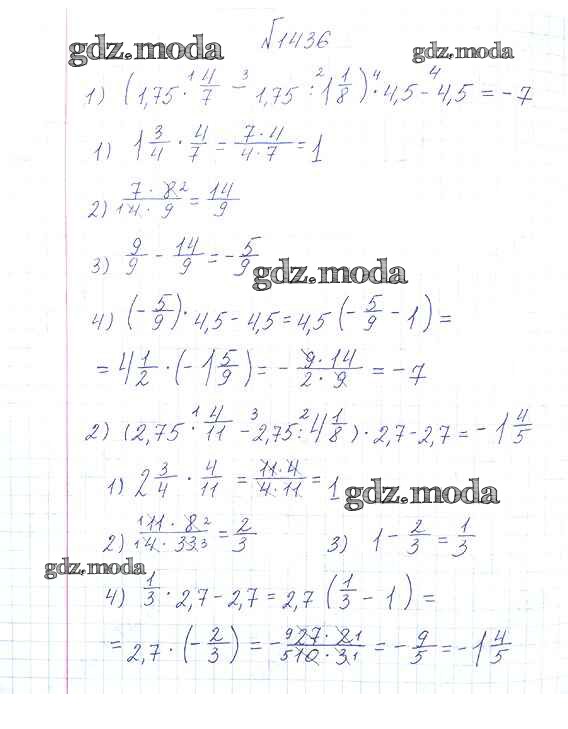 gdz.moda
№1436
gdz.moda
1) (1,75 · 4/7 - 1,75 : 1 1/8) · 4,5 - 4,5 = -7
1) 1 3/4 · 4/7 = 7·4/4·7 = 1
2) 7·8 2/1 4·9 = 14/9
3) 9/9 - 14/9 = -5/9
gdz.moda
4) (-5/9) · 4,5 - 4,5 = 4,5 (-5/9 - 1) =
= 4 1/2 · (-1 5/9) = - 9·14/2·9 = -7
2) (2,75 · 4/11 - 2,75 : 4 1/8) · 2,7 - 2,7 = -1 4/5
1) 2 3/4 · 4/11 = 11·4/4·11 = 1
gdz.moda
2) 1 11·8 2/1 4·33 3 = 2/3
3) 1 - 2/3 = 1/3
gdz.moda
4) 1/3 · 2,7 - 2,7 = 2,7 (1/3 - 1) =
= 2,7 · (-2/3) = - 9 27·2 1/5 10·3 1 = -9/5 = -1 4/5